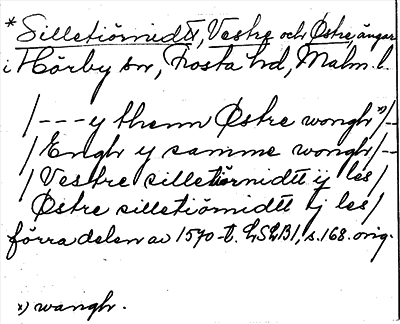 *Silletiörnidtt, Vestre och Östre, ängar
i Hörby sn, Frosta hd, Malm. l.
/---y themn Östre wongh x)/--
/Engh y samme wongh/--
/Vestre silletiörnidtt ij les/
Östre silletiörnidtt ij les/
förra delen av 1570-t. LSLB1, s. 168. orig.
x) wangh.